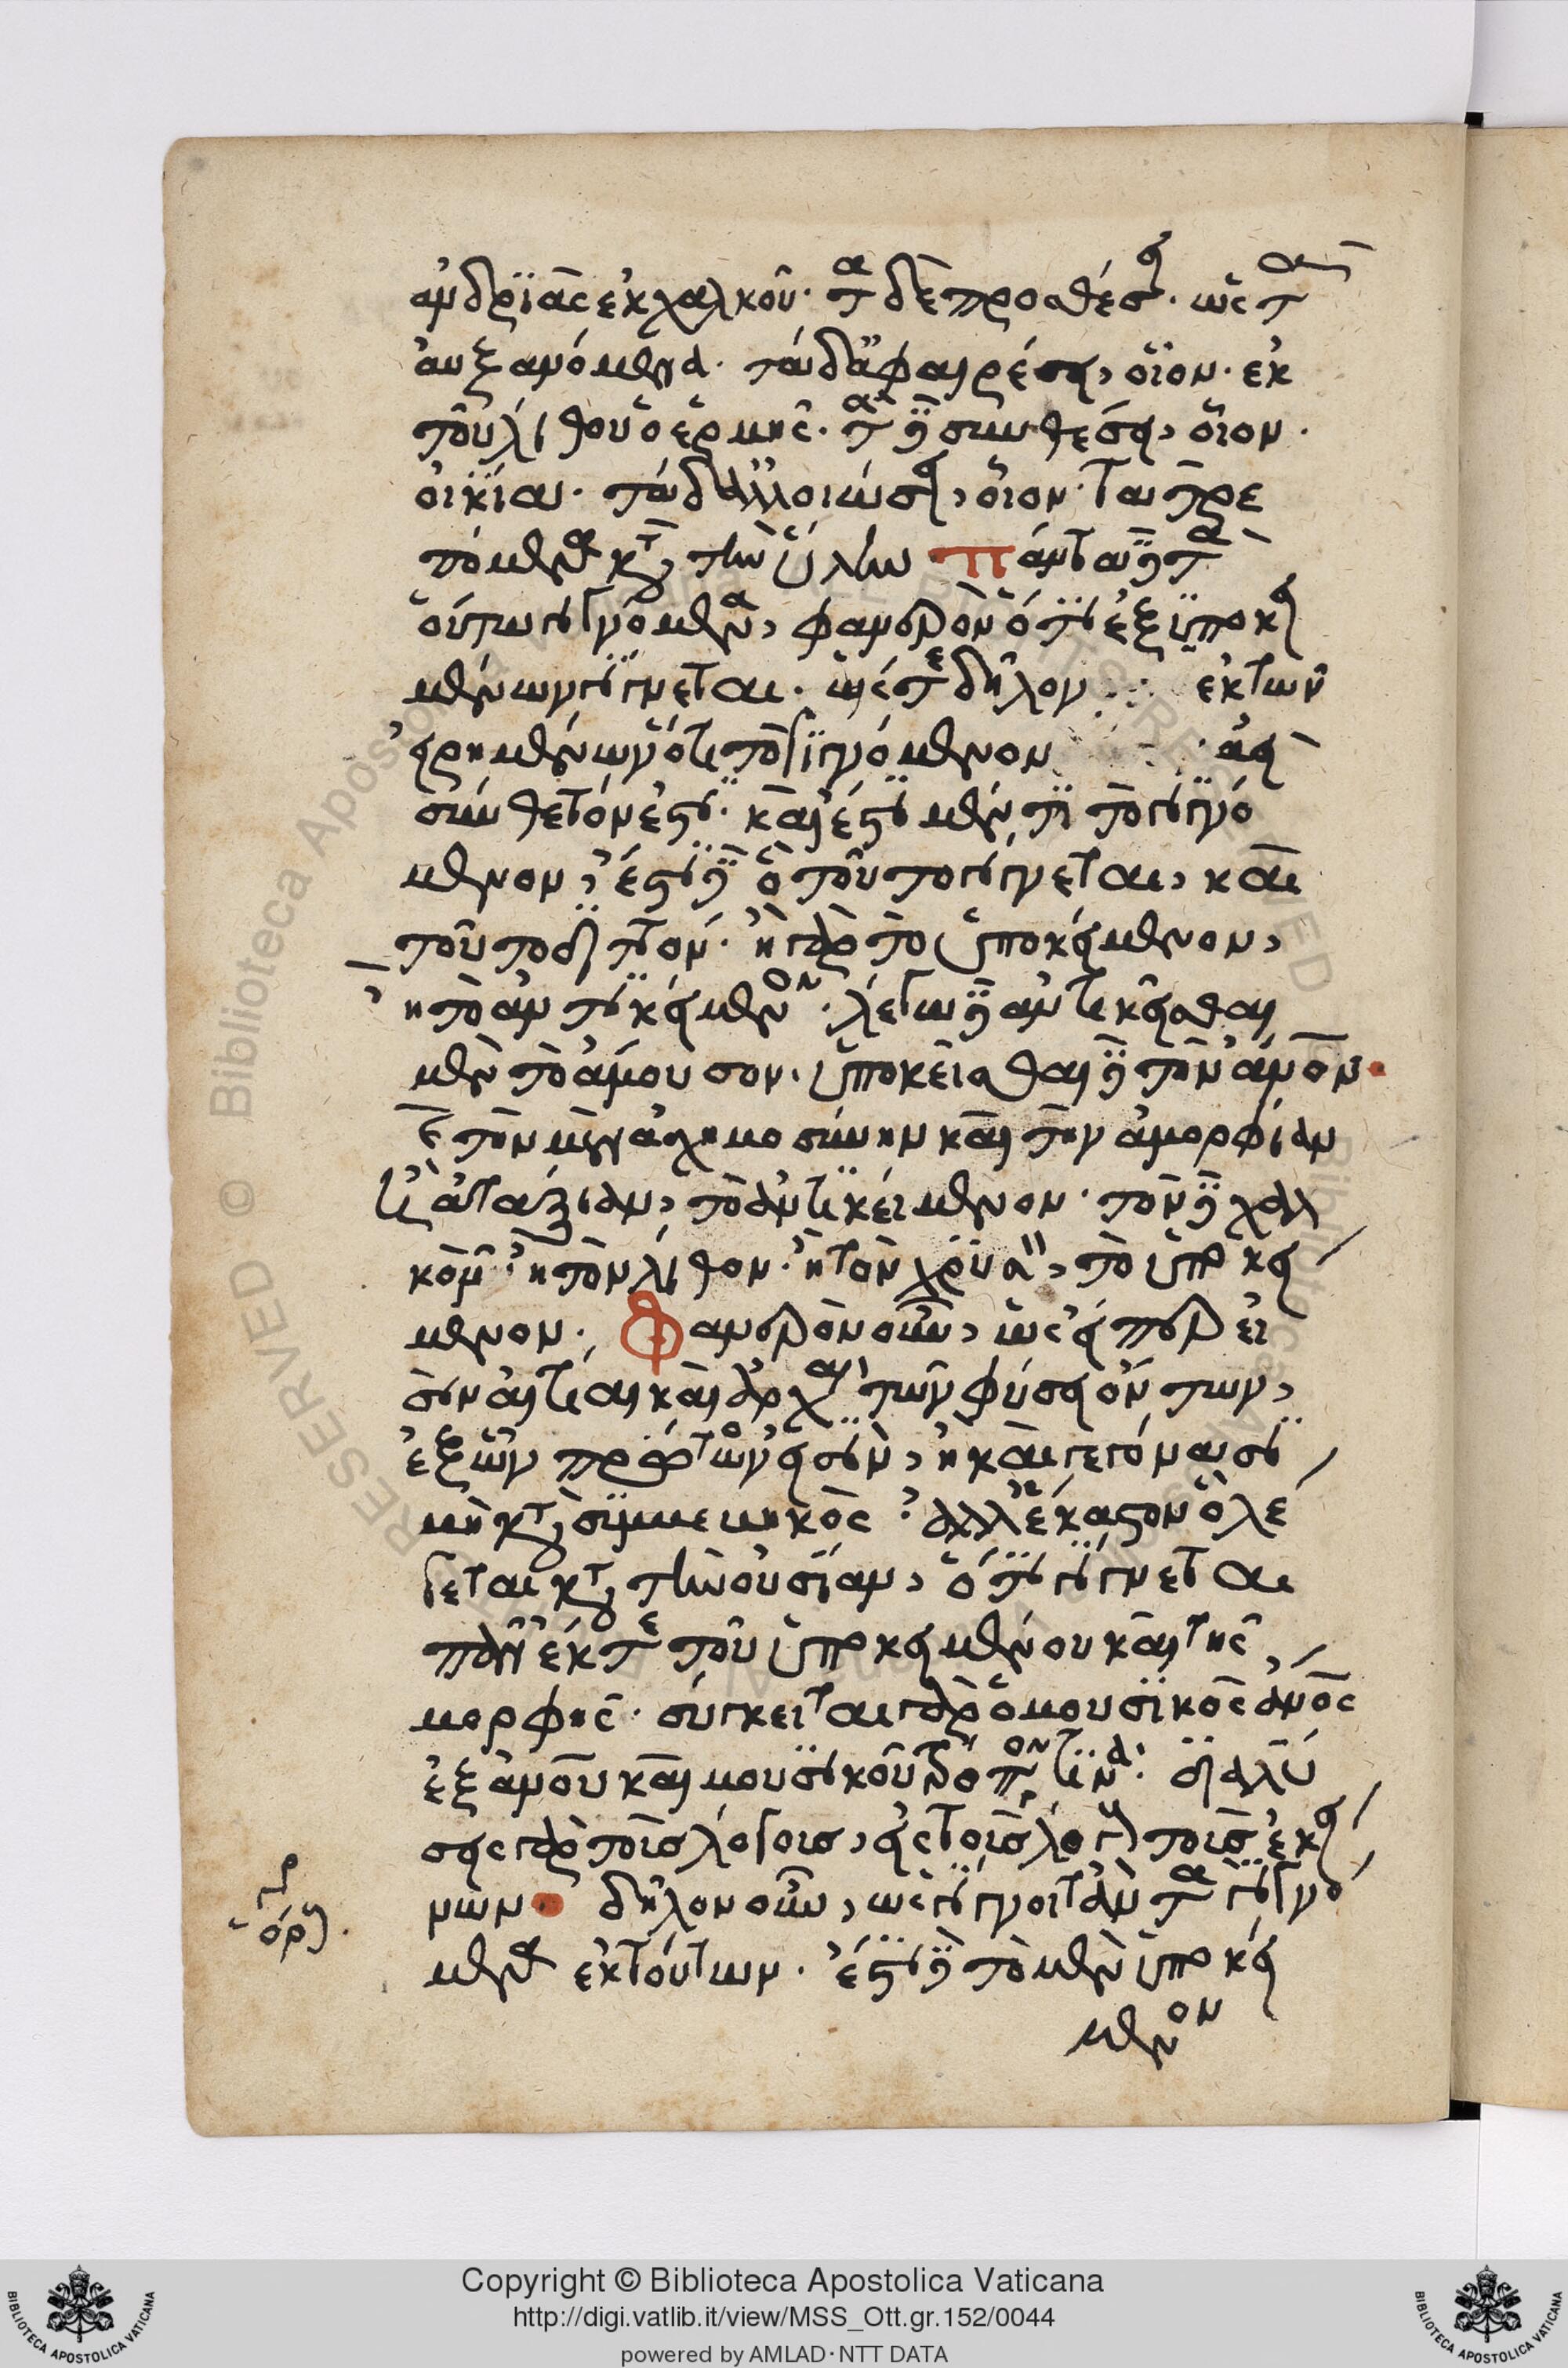 ἀνδριὰς ἐκ χαλκοῦ· τὰ δὲ προσθέσει· ὡς τὰ
αὐξανόμενα· τὰ δ' ἀφαιρέσει, οἷον· ἐκ
τοῦ λίθου ὁ ἑρμῆς· τὰ δὲ συνθέσει, οἷον·
οἰκία· τὰ δ' ἀλλοιώσει, οἷον· τὰ τρε
πόμενα κατὰ τὴν ὕλην· πάντα δὲ τὰ
οὕτω γινόμενα, φανερὸν ὅτι ἐξ ὑποκει
μένων γίγνεται. ὥστε δῆλον ἐκ τῶν
εἰρημένων ὅτι τὸ γιγνόμενον ἀεὶ
σύνθετόν ἐστι· καὶ ἔστι μέν τι τὸ γιγνό
μενον, ἔστι δὲ ὃ τοῦτο γίγνεται, καὶ
τοῦτο διττόν· ἢ γὰρ τὸ ὑποκείμενον,
ἢ τὸ ἀντικείμενον· λέγω δὲ ἀντικεῖσθαι
μὲν τὸ ἄμουσον· ὑποκεῖσθαι δὲ τὸν ἄνον·
καὶ τὴν μὲν ἀσχημοσύνην καὶ τὴν ἀμορφίαν
καὶ ἀταξίαν, τὸ ἀντικείμενον· τὸν δὲ χαλ
κὸν· ἢ τὸν λίθον· ἢ τὸν χρυσὸν, τὸ ὑποκεί
μενον. Φανερὸν οὖν, ὡς εἴπερ εἰ
σὶν αἰτίαι καὶ ἀρχαὶ τῶν φύσει ὄντων,
ἐξ ὧν πρώτων εἰσὶν, ἢ καὶ γεγόνασι
μὴ κατὰ συμβεβηκὸς· ἀλλ' ἕκαστον ὃ λέ
γεται κατὰ τὴν οὐσίαν, ὅτι γίγνεται
πᾶν ἔκ τε τοῦ ὑποκειμένου καὶ τῆς
μορφῆς· σύγκειται γὰρ ὁ μουσικὸς ἄνος
ἐξ ἀνου καὶ μουσικοῦ τρόπον τινά· διαλύ
σεις γὰρ τοῖς λόγοις, εἰς τοῖς λόγους τοῖς ἐκεί
νων· δῆλον οὖν, ὡς γίγνοιτ' ἂν τὰ γιγνό
μενα ἐκ τούτων. ἔστι δὲ τὸ μὲν ὑποκεί
μενον
γρ ὅρους.
Copyright © Biblioteca Apostolica Vaticana
http://digi.vatlib.it/view/MSS_Ott.gr.152/0044
powered by AMLAD·NTT DATA